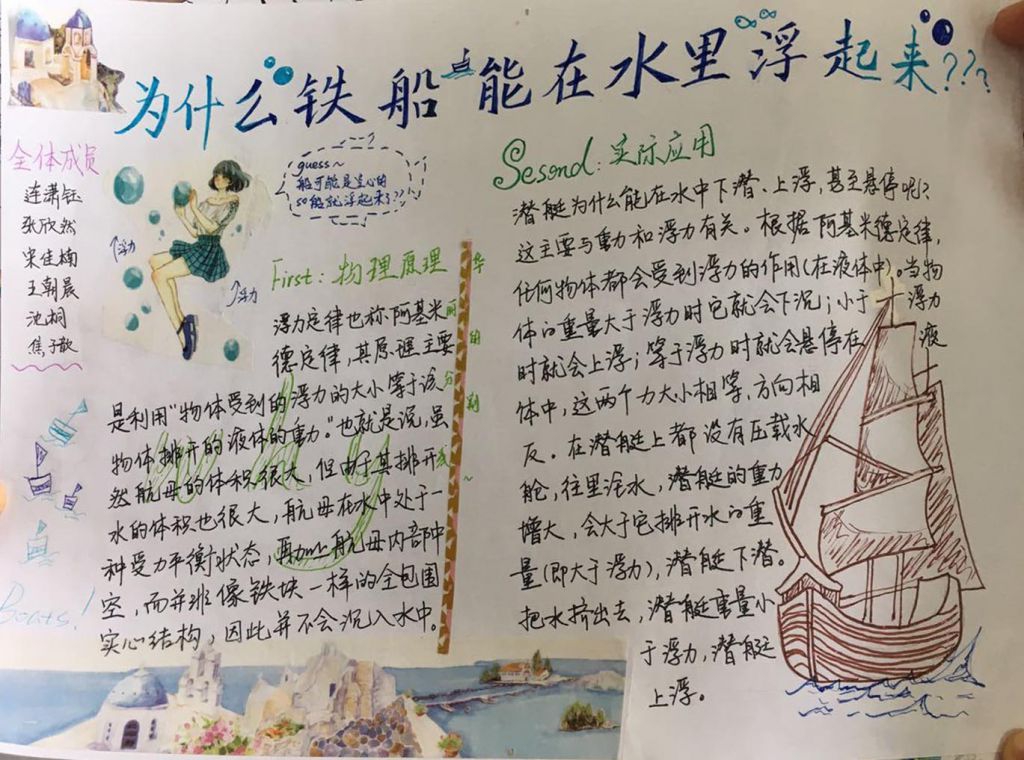 为什么铁船能在水里浮起来???
全体成员
连潇钰
张欣然
宋佳楠
王朝晨
沈桐
焦子歆
guess~
船可能是空心的
so能就浮起来了??
↑浮力
↑浮力
First: 物理原理
浮力定律也称阿基米
德定律,其原理主要
是利用"物体受到的浮力的大小等于该
物体排开的液体的重力。"也就是说,虽
然航母的体积很大,但由于其排开
水的体积也很大,航母在水中处于一
种受力平衡状态,再加上航母内部中
空,而并非像铁块一样的全包围
实心结构,因此并不会沉入水中。
华丽的分割线~
Sesond: 实际应用
潜艇为什么能在水中下潜、上浮,甚至悬停呢?
这主要与重力和浮力有关。根据阿基米德定律,
任何物体都会受到浮力的作用(在液体中)。当物
体的重量大于浮力时它就会下沉;小于浮力
时就会上浮;等于浮力时就会悬停在液
体中,这两个力大小相等,方向相
反。在潜艇上都设有压载水
舱,往里注水,潜艇的重力
增大,会大于它排开水的重
量(即大于浮力),潜艇下潜。
把水挤出去,潜艇重量小
于浮力,潜艇
上浮。
Boats!